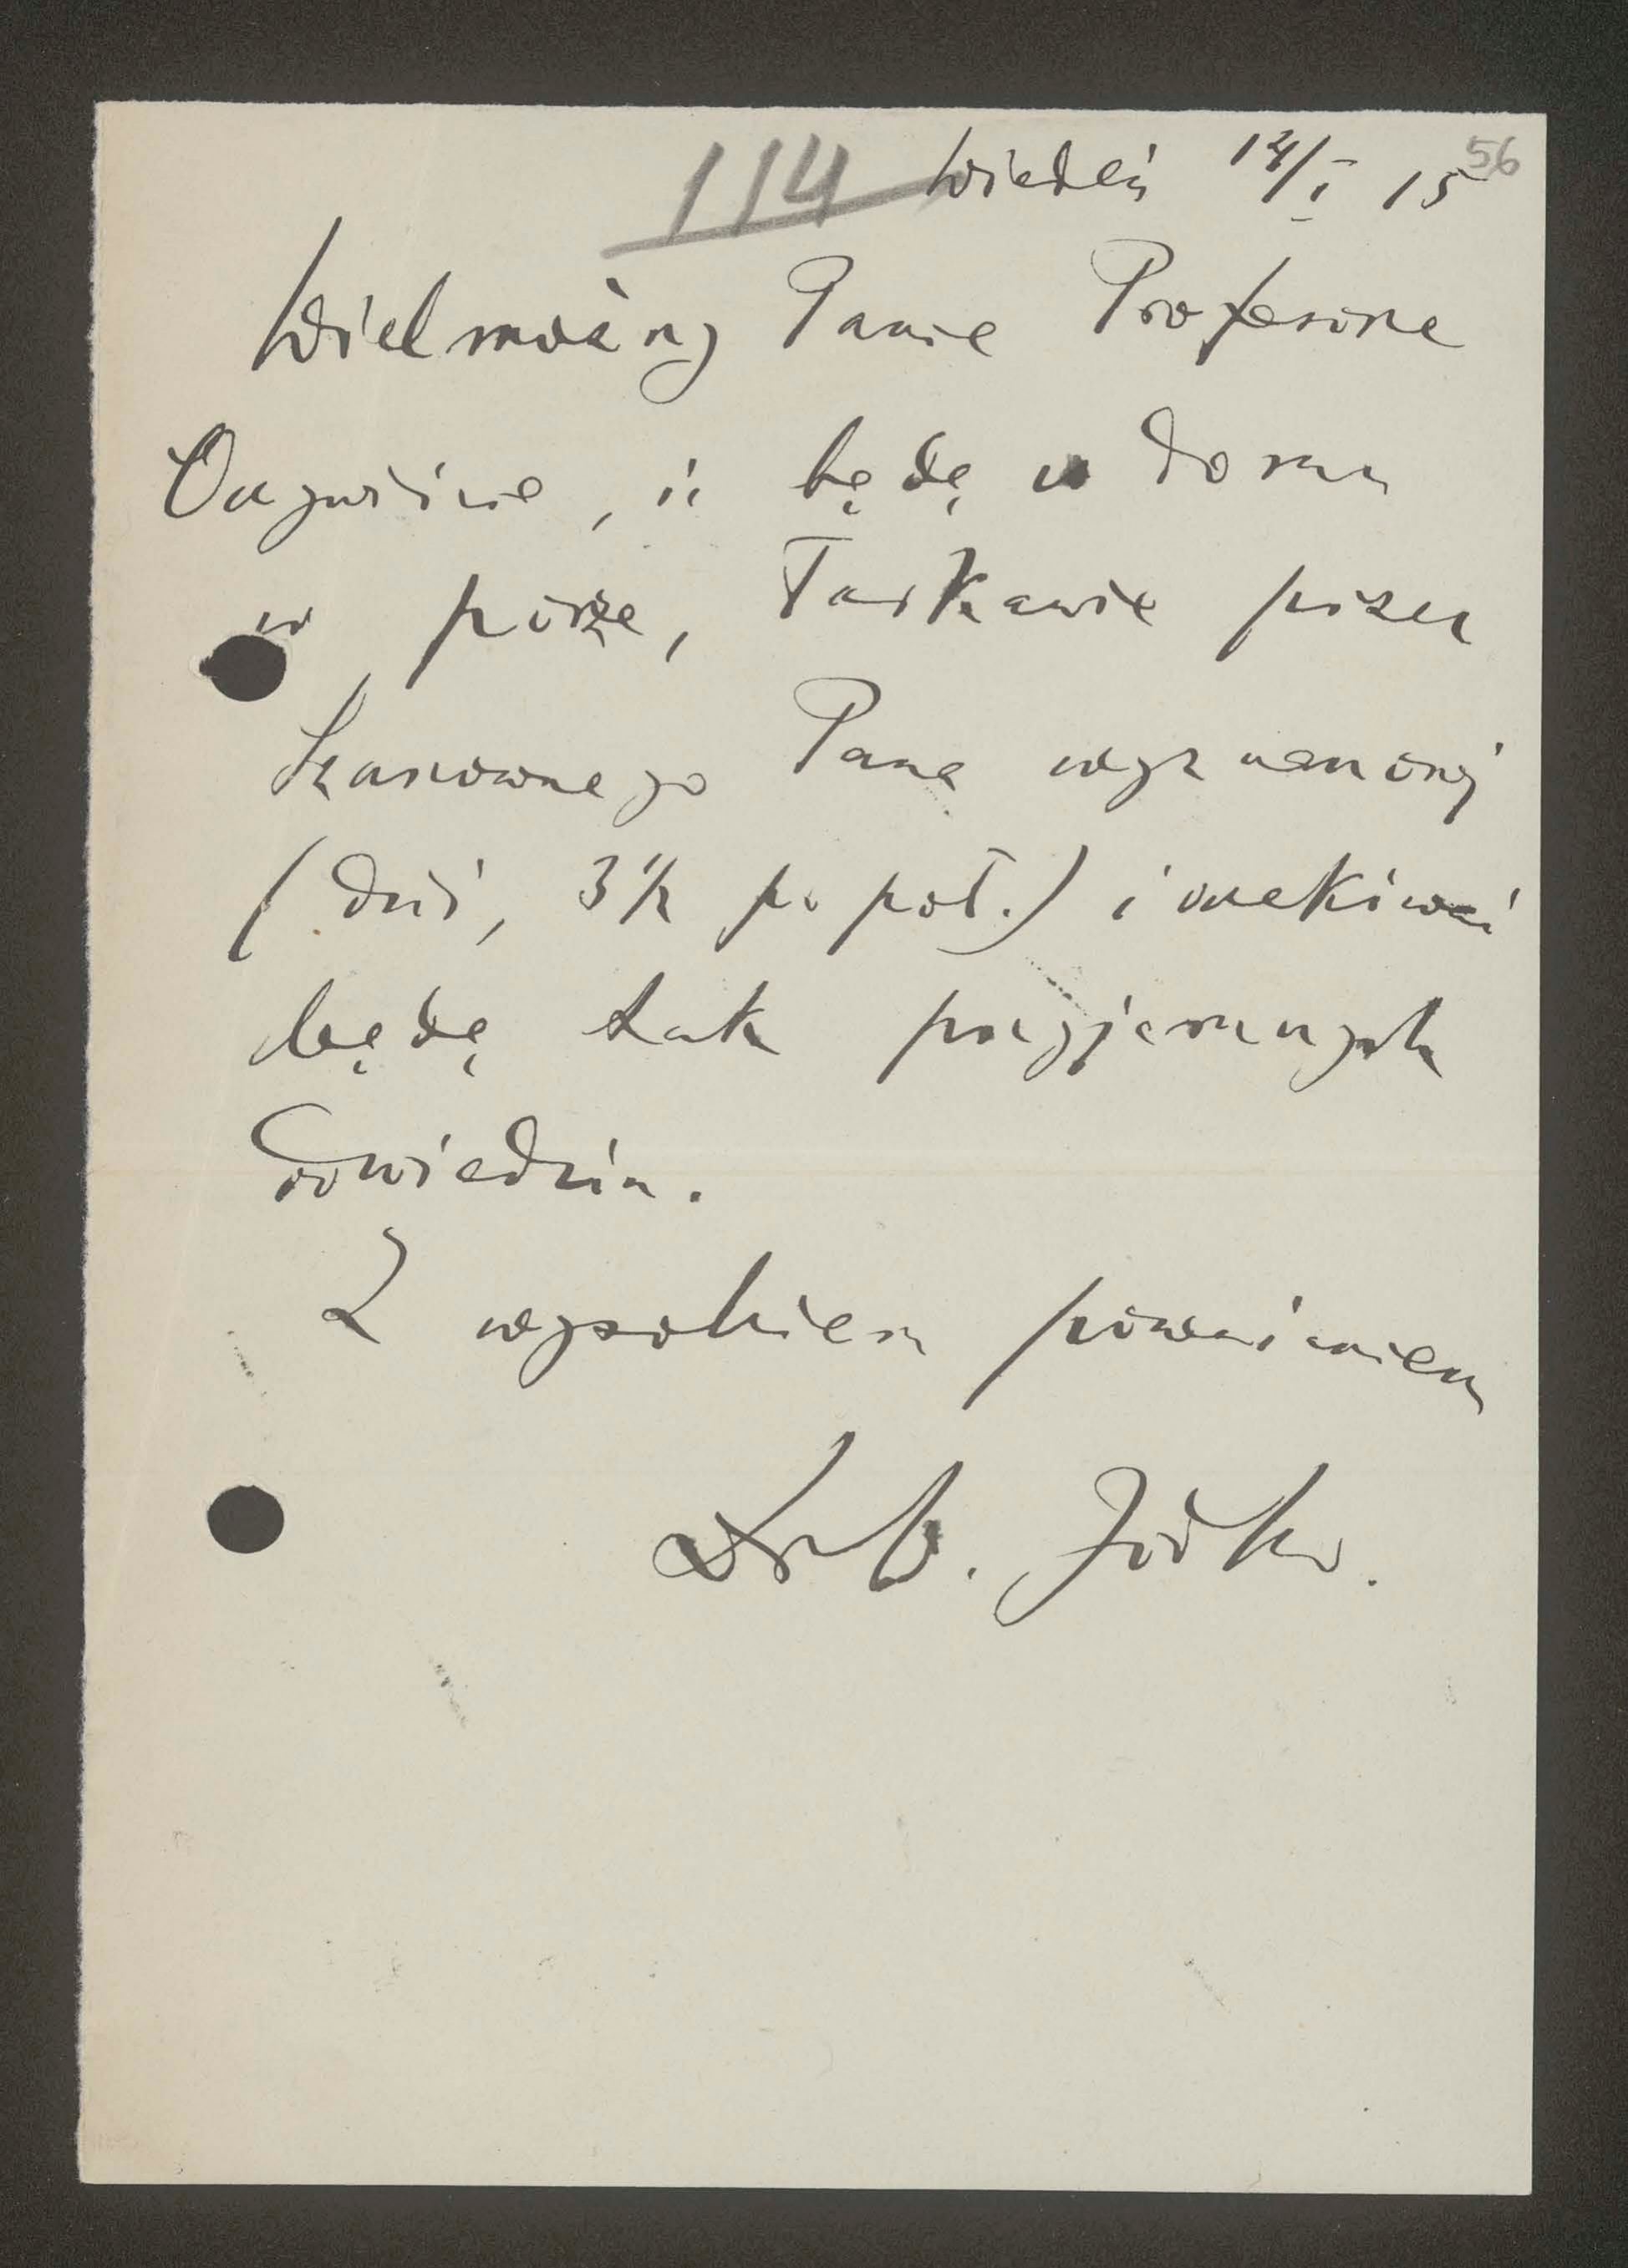 114 Wiedeń 14/I 15 56
Wielmożny Panie Profesorze
Oczywiście, iż będę w domu
w porze, łaskawie przez
Szanownego Pana wyznaczonej
(dziś, 3 1/2 po poł.) i oczekiwać
będę tak przyjemnych
odwiedzin.
Z wysokiem poważaniem
Dr W. Jodko.